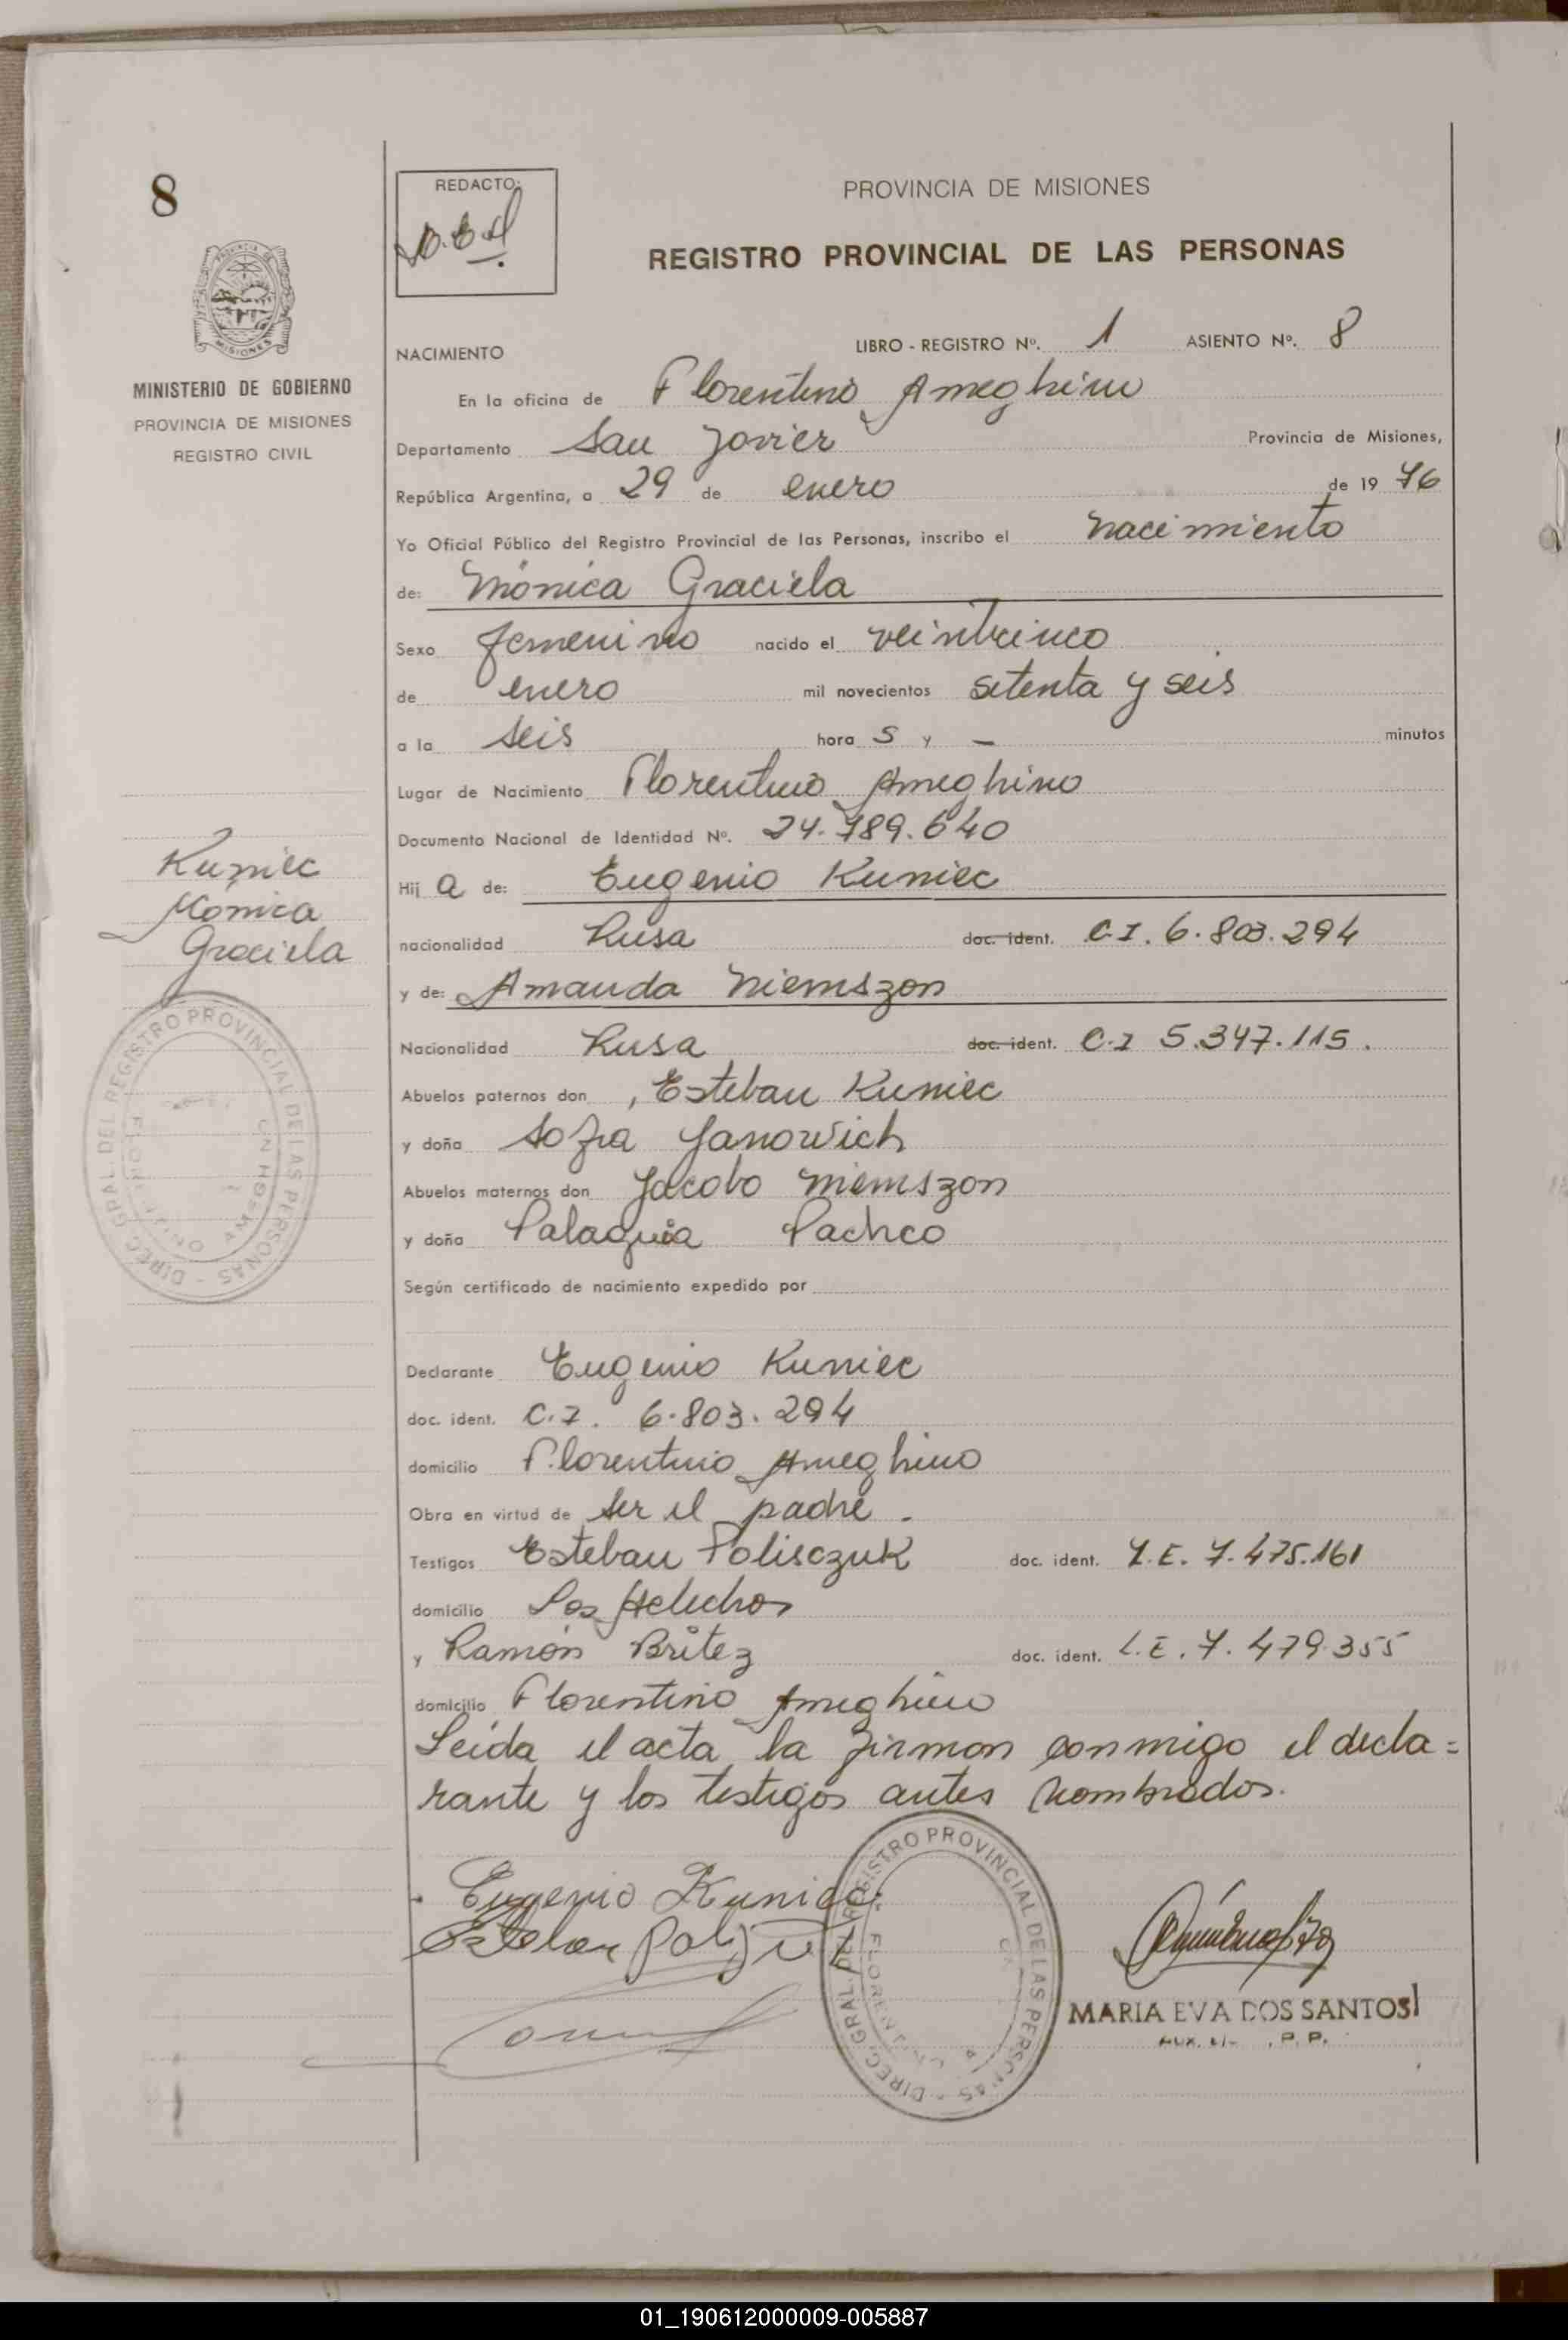 8
REDACTO:
PROVINCIA DE MISIONES
REGISTRO PROVINCIAL DE LAS PERSONAS
MISIONES
MINISTERIO DE GOBIERNO
PROVINCIA DE MISIONES
REGISTRO CIVIL
NACIMIENTO LIBRO - REGISTRO Nº. 1 ASIENTO Nº. 8
En la oficina de Florentino Ameghino
Departamento San Javier Provincia de Misiones,
República Argentina, a 29 de enero de 19 76
Yo Oficial Público del Registro Provincial de las Personas, inscribo el nacimiento
de: Mónica Graciela
Sexo femenino nacido el veinticinco
de enero mil novecientos setenta y seis
a la seis hora s y — minutos
Lugar de Nacimiento Florentino Ameghino
Documento Nacional de Identidad Nº. 24.789.640
Hij a de: Eugenio Kuniec
nacionalidad Rusa doc. ident. C.I. 6.803.294
y de: Amanda Niemszon
Nacionalidad Rusa doc. ident. C.I 5.347.115.
Abuelos paternos don, Esteban Kuniec
y doña Sofia Janowich
Abuelos maternos don Jacobo Niemszon
y doña Palaguia Pacheo
Según certificado de nacimiento expedido por
Declarante Eugenio Kuniec
doc. ident. C.I. 6.803.294
domicilio Florentino Ameghino
Obra en virtud de ser el padre.
Testigos Esteban Polisczuk doc. ident. L.E. 7.475.161
domicilio Los Helechos
y Ramón Britez doc. ident. L.E. 7.479.355
domicilio Florentino Ameghino
Leída el acta la firman conmigo el decla=
rante y los testigos antes nombrados.
Kuniec
Mónica
Graciela
DIREC. GRAL. DEL REGISTRO PROVINCIAL DE LAS PERSONAS
FLORENTINO AMEGHINO
Eugenio Kuniec
Esteban
DIREC. GRAL. DEL REGISTRO PROVINCIAL DE LAS PERSONAS
MARIA EVA DOS SANTOS
01_190612000009-005887